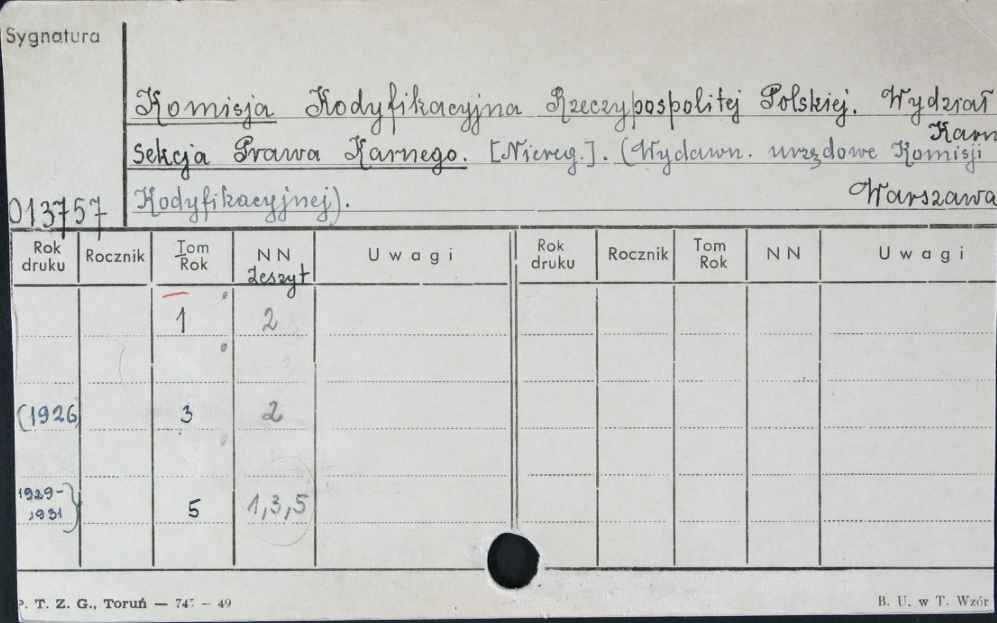 Sygnatura
Komisja Kodyfikacyjna Rzeczypospolitej Polskiej. Wydział
Karn
Sekcja Prawa Karnego. [Niereg.]. (Wydawn. urzędowe Komisji
Kodyfikacyjnej).
Warszawa
013757
Rok druku Rocznik Tom Rok NN Zeszyt Uwagi Rok druku Rocznik Tom Rok NN Uwagi
1 2
(1926 3 2
1929-
1931} 5 1,3,5
P. T. Z. G., Toruń — 49
B. U. w T. Wzór